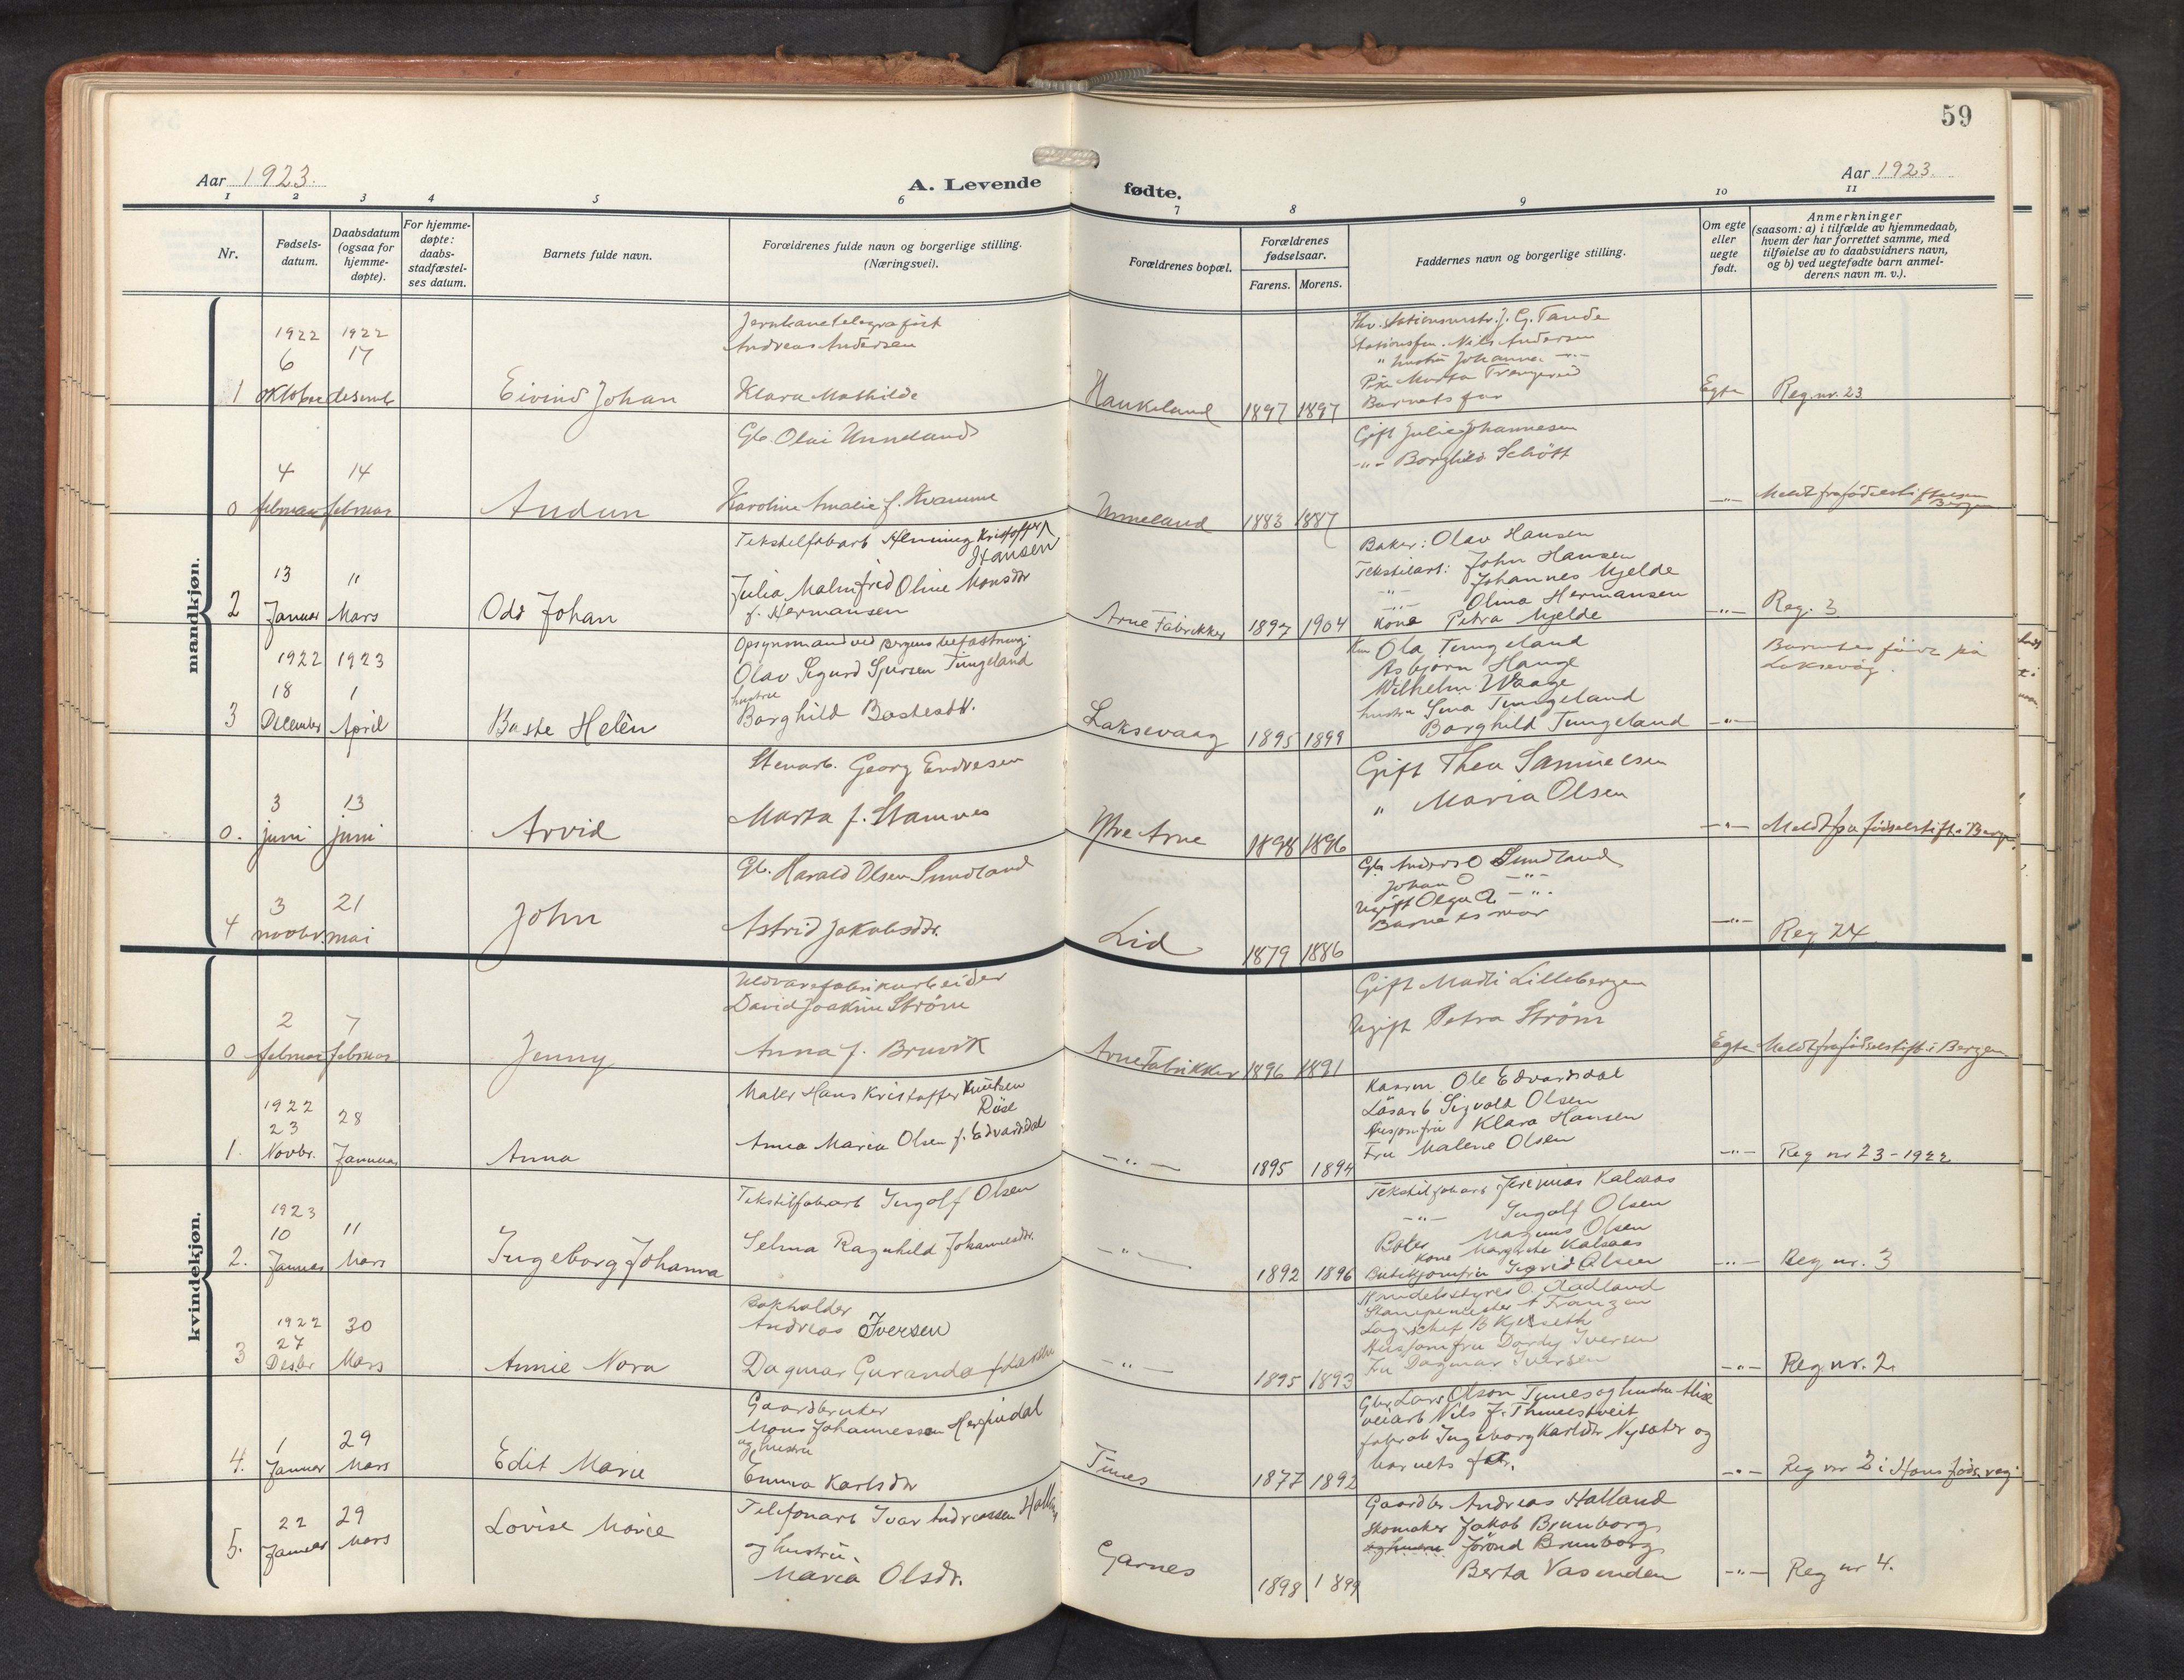 59
Aar 1923.
A. Levende
fødte.
Aar 1923.
1 2 3 4 5 6 7 8 9 10 11
Nr.
Fødsels-
datum.
Daabsdatum
(ogsaa for
hjemme-
døpte).
For hjemme-
døpte:
daabs-
stadfæstel-
ses datum.
Barnets fulde navn.
Forældrenes fulde navn og borgerlige stilling.
(Næringsvei).
Forældrenes bopæl.
Forældrenes
fødselsaar.
Farens. Morens.
Faddernes navn og borgerlige stilling.
Om egte
eller
uegte
født.
Anmerkninger
(saasom: a) i tilfælde av hjemmedaab,
hvem der har forrettet samme, med
tilføielse av to daabsvidners navn,
og b) ved uegtefødte barn anmel-
derens navn m. v.).
mandkjøn.
1
1922
6
oktober
1922
17
desembr
Eivind Johan
Jernbanetelegrafist
Andreas Andersen
Klara Mathilde
Haukeland
1897 1897
stationsmstr. J. G. Tande
Stationsfm. Nils Andersen
" hustru Johanna -"-
Pike Marta
Barnets far
Egte
Reg. nr. 23
0
4
februar
14
februar
Audun
Gb. Olai Unneland
Karoline Amalie f. Kvamme
Unneland
1883 1887
Gift Julie Johannesen
-"- Borghild Schött
-"-
Meldt fra fødselsstiftelsen
Bergen
2
13
Januar
11
Mars
Odd Johan
Tekstilfabarb Henning Kristoffer
Hansen
Julia Malmfrid Oline Monsdtr
f. Hermansen
Arne Fabrikker
1897 1904
Baker: Olav Hansen
Tekstilarb: John Hansen
-"- Johannes Mjelde
-"- Olina Hermansen
Kone Petra Mjelde
-"-
Reg. 3
3
1922
18
December
1923
1
April
Baste Helèn
Opsynsmand ved Bergens befæstning:
Olav Sigurd Sjursen Tungeland
hustru
Borghild Bastesdtr.
Laksevaag
1895 1899
Ola Tungeland
Asbjørn Hauge
Wilhelm Waage
hustru Sina Tungeland
Borghild Tungeland
-"-
Barnet er født på
Laksevåg.
0.
3
juni
13
juni
Arvid
Stenarb. Georg Endresen
Marta f. Stamnes
Ytre Arne
1898 1896
Gift Thea Samuelsen
" Maria Olsen
-"-
Meldt fra fødselsstift i Bergen.
4
3
novbr
21
mai
John
Gb. Harald Olsen Sundland
Astrid Jakobsdtr.
Lid
1879 1886
Gb Anders O Sundland
Johan O -"-
Ugift Olga O. -"-
Barnets mor
-"-
Reg 24
kvindekjøn.
0
2
februar
7
februar
Jenny
Uldvarefabrikarbeider
David Joakim Strøm
Anna f. Bruvik
Arne Fabrikker
1896 1891
Gift Marti Lillebergen
Ugift Petra Strøm
Egte
Meldt fra fødselsstift i Bergen
1.
1922
23
Novbr.
28
Januar
Anna
Maler Hans Kristoffer Knutsen
Anna Maria Olsen f. Edvardsdal
-"-
1895 1894
Ole Edvardsdal
Løsarb Sigvald Olsen
Husjomfru Klara Hansen
Fru Malene Olsen
-"-
Reg nr 23-1922
2.
1923
10
Januar
11
Mars
Ingeborg Johanna
Tekstilfabarb Ingolf Olsen
Selma Ragnhild Johannesdtr.
-"-
1892 1896
Tekstilfabarb Jeremias Kalsaas
-"- Ingolf Olsen
Magnus Olsen
Kone Margrethe Kalsaas
Butikjomfru Sigrid Olsen
-"-
Reg nr. 3
3
1922
27
Desbr
30
Mars
Annie Nora
Bokholder
Andreas Iversen
Dagmar Guranda
-"-
1895 1893
O. Aadland
Stampemester A Franzen
Lagerchef B Kjesseth
Husjomfru Dordy Iversen
Fru Dagmar Iversen
-"-
Reg. nr. 2.
4.
1
Januar
29
Mars
Edit Marie
Gaardbruker
Mons Johannessen Herfindal
og hustru
Emma Karlsdtr
Tunes
1877 1892
Gbr. Lars Olson Tunes og hustru Alise
veiarb Nils J. Tunestveit
fabrarb Ingeborg Karlsdtr Nysæter og
barnets far.
-"-
Reg nr 2 i Haus føds. reg.
5.
22
Januar
29
Mars
Lovise Marie
Telefonarb Ivar Andreassen
og hustru.
Maria Olsdr.
Garnes
1898 1899
Gaardbr Andreas Halland
Skomaker Jakob Brunborg
og hustru Jørønd Brunborg
Berta Vasenden
-"-
Reg nr 4.